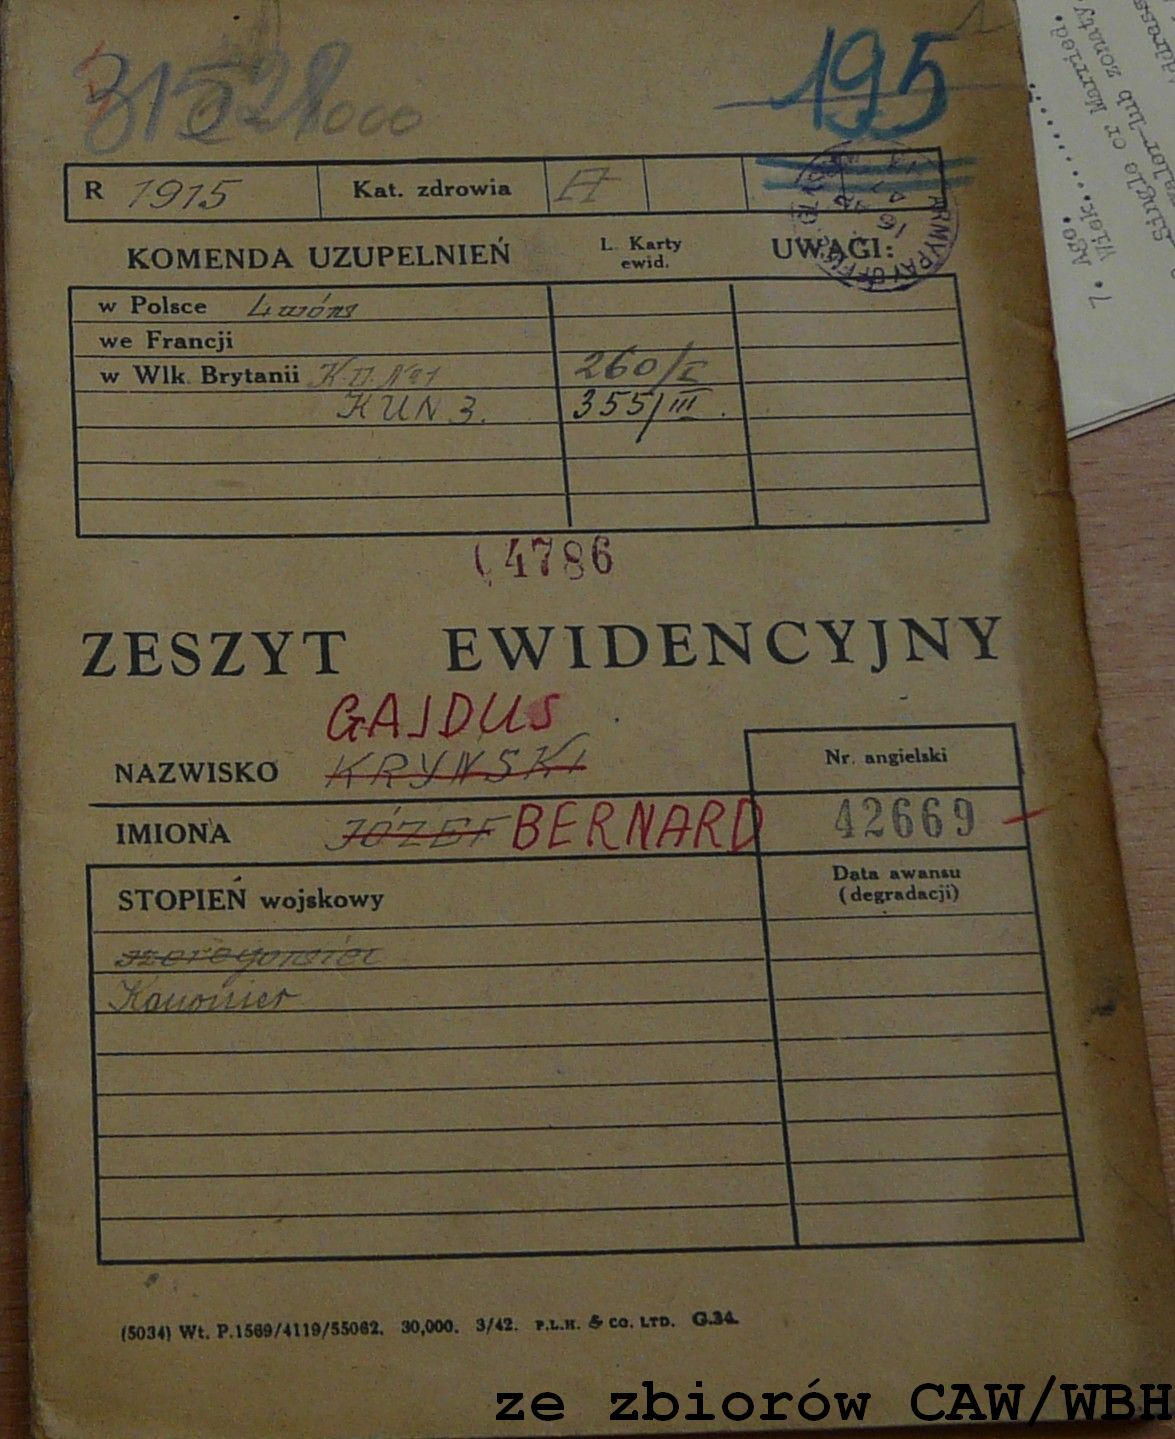 195
R 1915 Kat. zdrowia A
KOMENDA UZUPELNIEŃ L. Karty ewid. UWAGI:
ARMY PAY OFFICE
w Polsce Lwów
we Francji
w Wlk. Brytanii K.U. No 1 260/I
K U N 3. 355/III.
4786
ZESZYT EWIDENCYJNY
GAJDUS
NAZWISKO KRYNSKI
Nr. angielski
IMIONA JÓZEF BERNARD 42669
STOPIEŃ wojskowy Data awansu (degradacji)
szeregowiec
Kanonier
(5034) Wt. P.1569/4119/55062. 30,000. 3/42. P.L.H. & CO. LTD. G.34.
ze zbiorów CAW/WBH
7. Age.
Wiek.
Single or Married.
lub żonaty